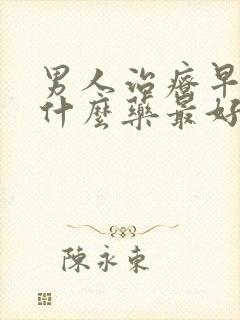 男人治療早
什麼藥最好
陳永東